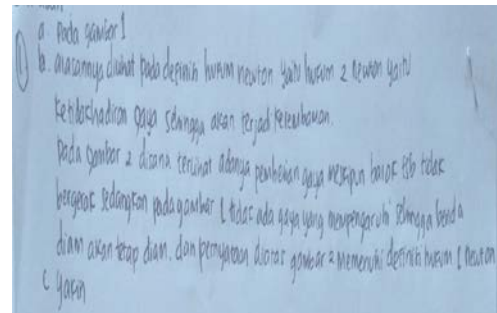 a. Pada gambar 1
① b. alasannya dilihat pada definisi hukum newton yaitu hukum 2 newton yaitu
ketidakhadiran gaya sehingga akan terjadi
Pada gambar 2 disana terlihat adanya pemberian gaya meskipun balok tsb tidak
bergerak sedangkan pada gambar 1 tidak ada gaya yang mempengaruhi sehingga benda
diam akan tetap diam. dan pernyataan diatas gambar 2 memenuhi definisi hukum 1 newton
c. Yakin